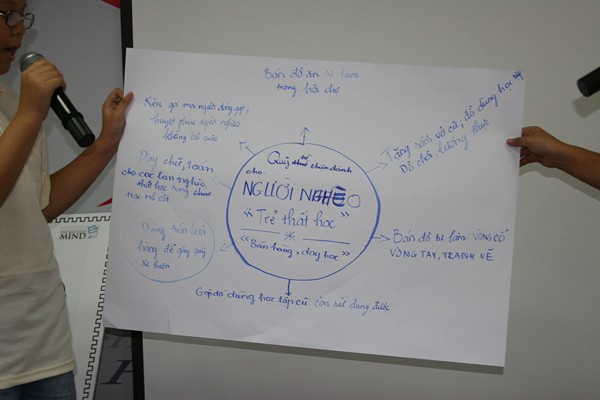 Bán đồ ăn tự làm
trong hội chợ
Kêu gọi mọi người đóng góp,
thuyết phục người nghèo
không bỏ cuộc
Dạy chữ, toán
cho các bạn nghèo,
thất học trong
trại mồ côi
Quỹ từ thiện dành
cho:
NGƯỜI NGHÈO
"Trẻ thất học"
"Bán hàng, dạy học"
Tặng sách vở cũ, đồ dùng học tập
Đồ chơi, lương thực
Bán đồ tự làm: VÒNG CỔ
VÒNG TAY, TRANH VẼ
Gọi đồ dùng học tập cũ còn sử dụng được
hàng để gây quỹ
từ thiện
MIND